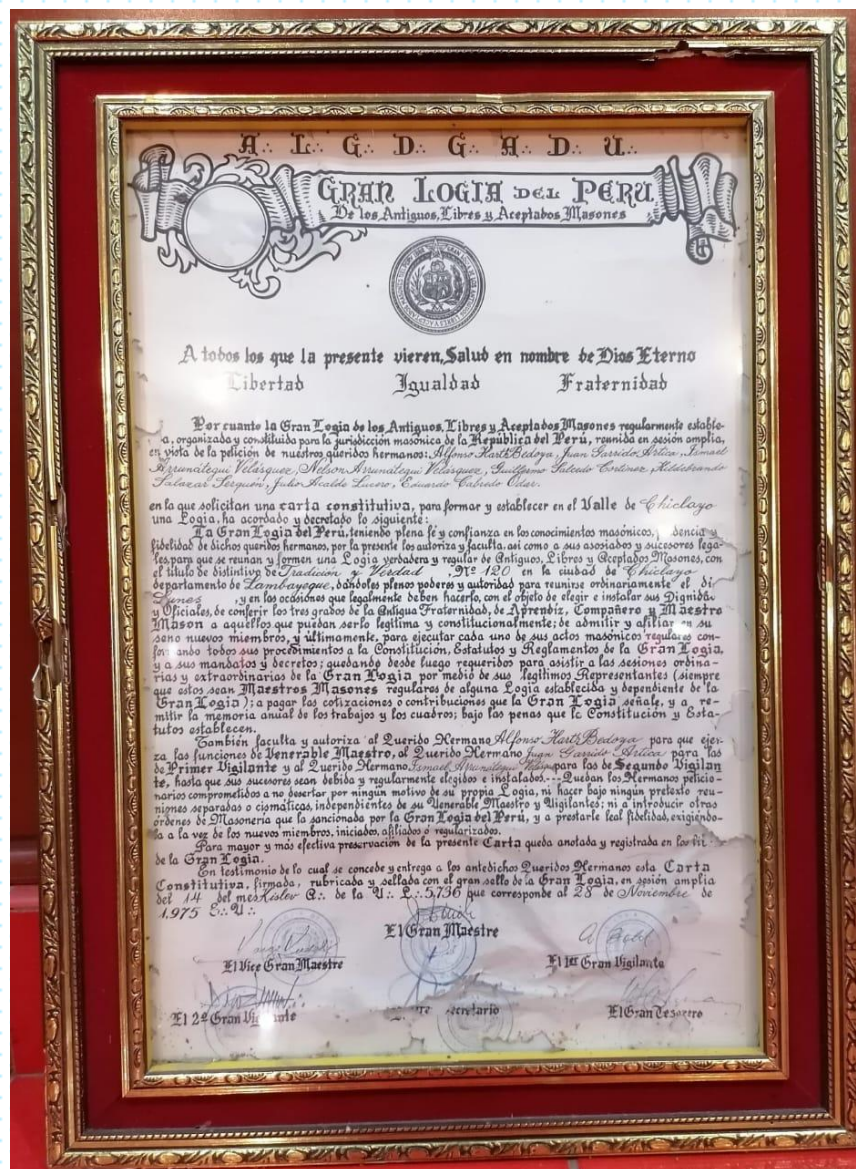 A∴ L∴ G∴ D∴ G∴ A∴ D∴ U∴
GRAN LOGIA DEL PERU
De los Antiguos, Libres y Aceptados Masones
A todos los que la presente vieren, Salud en nombre de Dios Eterno
Libertad Igualdad Fraternidad
Por cuanto la Gran Logia de los Antiguos, Libres y Aceptados Masones regularmente estable-
a, organizada y constituida para la jurisdicción masónica de la República del Perú, reunida en sesión amplia,
en vista de la petición de nuestros queridos hermanos: Alfonso Hartz Bedoya, Juan Garrido Artica, Ismael
Arrunátegui Velásquez, Nelson Arrunátegui Velásquez, Guillermo Salcedo Cortinez, Hildebrando
Salazar Serquén, Julio Acalde Lucero, Eduardo Cabredo Odar.
en la que solicitan una carta constitutiva, para formar y establecer en el Valle de Chiclayo
una Logia, ha acordado y decretado lo siguiente:
La Gran Logia del Perú, teniendo plena fé y confianza en los conocimientos masónicos, dencia y
fidelidad de dichos queridos hermanos, por la presente los autoriza y faculta, así como a sus asociados y sucesores lega-
les, para que se reunan y formen una Logia verdadera y regular de Antiguos, Libres y Aceptados Masones, con
el título de distintivo de Tradición y Verdad, Nº 120 en la ciudad de Chiclayo
departamento de Lambayeque, dándoles plenos poderes y autoridad para reunirse ordinariamente el dí
Lunes, y en las ocasiones que legalmente deben hacerlo, con el objeto de elegir e instalar sus Dignida
y Oficiales, de conferir los tres grados de la Antigua Fraternidad, de Aprendiz, Compañero y Maestro
Mason a aquellos que puedan serlo legítima y constitucionalmente; de admitir y afiliar en su
seno nuevos miembros, y últimamente, para ejecutar cada uno de sus actos masónicos regulares con-
formando todos sus procedimientos a la Constitución, Estatutos y Reglamentos de la Gran Logia,
y a sus mandatos y decretos; quedando desde luego requeridos para asistir a las sesiones ordina-
rias y extraordinarias de la Gran Logia por medio de sus legítimos Representantes (siempre
que estos sean Maestros Masones regulares de alguna Logia establecida y dependiente de la
Gran Logia); a pagar las cotizaciones o contribuciones que la Gran Logia señale, y a re-
mitir la memoria anual de los trabajos y los cuadros; bajo las penas que le Constitución y Esta-
tutos establecen.
También faculta y autoriza al Querido Hermano Alfonso Hartz Bedoya para que ejer-
za las funciones de Venerable Maestro, al Querido Hermano Juan Garrido Artica para las
de Primer Vigilante y al Querido Hermano Ismael Arrunátegui para las de Segundo Vigilan
te, hasta que sus sucesores sean debida y regularmente elegidos e instalados.---Quedan los Hermanos peticio-
narios comprometidos a no desertar por ningún motivo de su propia Logia, ni hacer bajo ningún pretexto reu-
niones separadas o cismáticas, independientes de su Venerable Maestro y Vigilantes; ni a introducir otras
órdenes de Masonería que la sancionada por la Gran Logia del Perú, y a prestarle leal fidelidad, exigiéndo-
la a la vez de los nuevos miembros, iniciados, afiliados o regularizados.
Para mayor y más efectiva preservación de la presente Carta queda anotada y registrada en los
de la Gran Logia.
En testimonio de lo cual se concede y entrega a los antedichos Queridos Hermanos esta Carta
Constitutiva, firmada, rubricada y sellada con el gran sello de la Gran Logia, en sesión amplia
del 14 del mes Kislev de la V∴ L∴ 5,736 que corresponde al 28 de Noviembre de
1,975 E∴ V∴
El Gran Maestre
El Vice Gran Maestre El 1er Gran Vigilante
El 2º Gran Vigilante secretario El Gran Tesorero